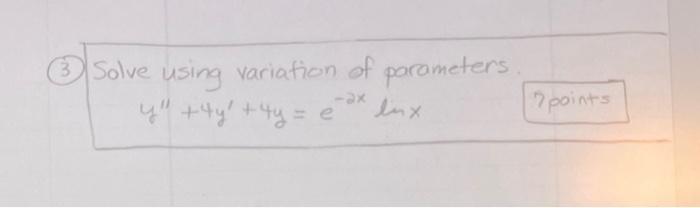 ③ Solve using variation of parameters.
y'' + 4y' + 4y = e^-2x ln x
7 points